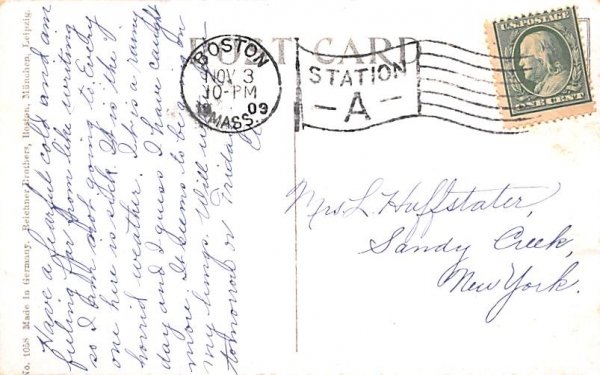 POST CARD
BOSTON
NOV 3
10-PM
1909
MASS.
STATION
A
U.S. POSTAGE
ONE CENT
Have a fearful cold and am
feeling far from like writing
so I am not going to. Every
one here is sick. It is the
horrid weather. It is a rainy
day and I guess I have caught
more. It seems to be going on
my lungs. Will
tomorrow or Friday
Mrs L. Huffstater,
Sandy Creek,
New York.
No. 1058. Made in Germany. Reichner Brothers, Boston, München, Leipzig.